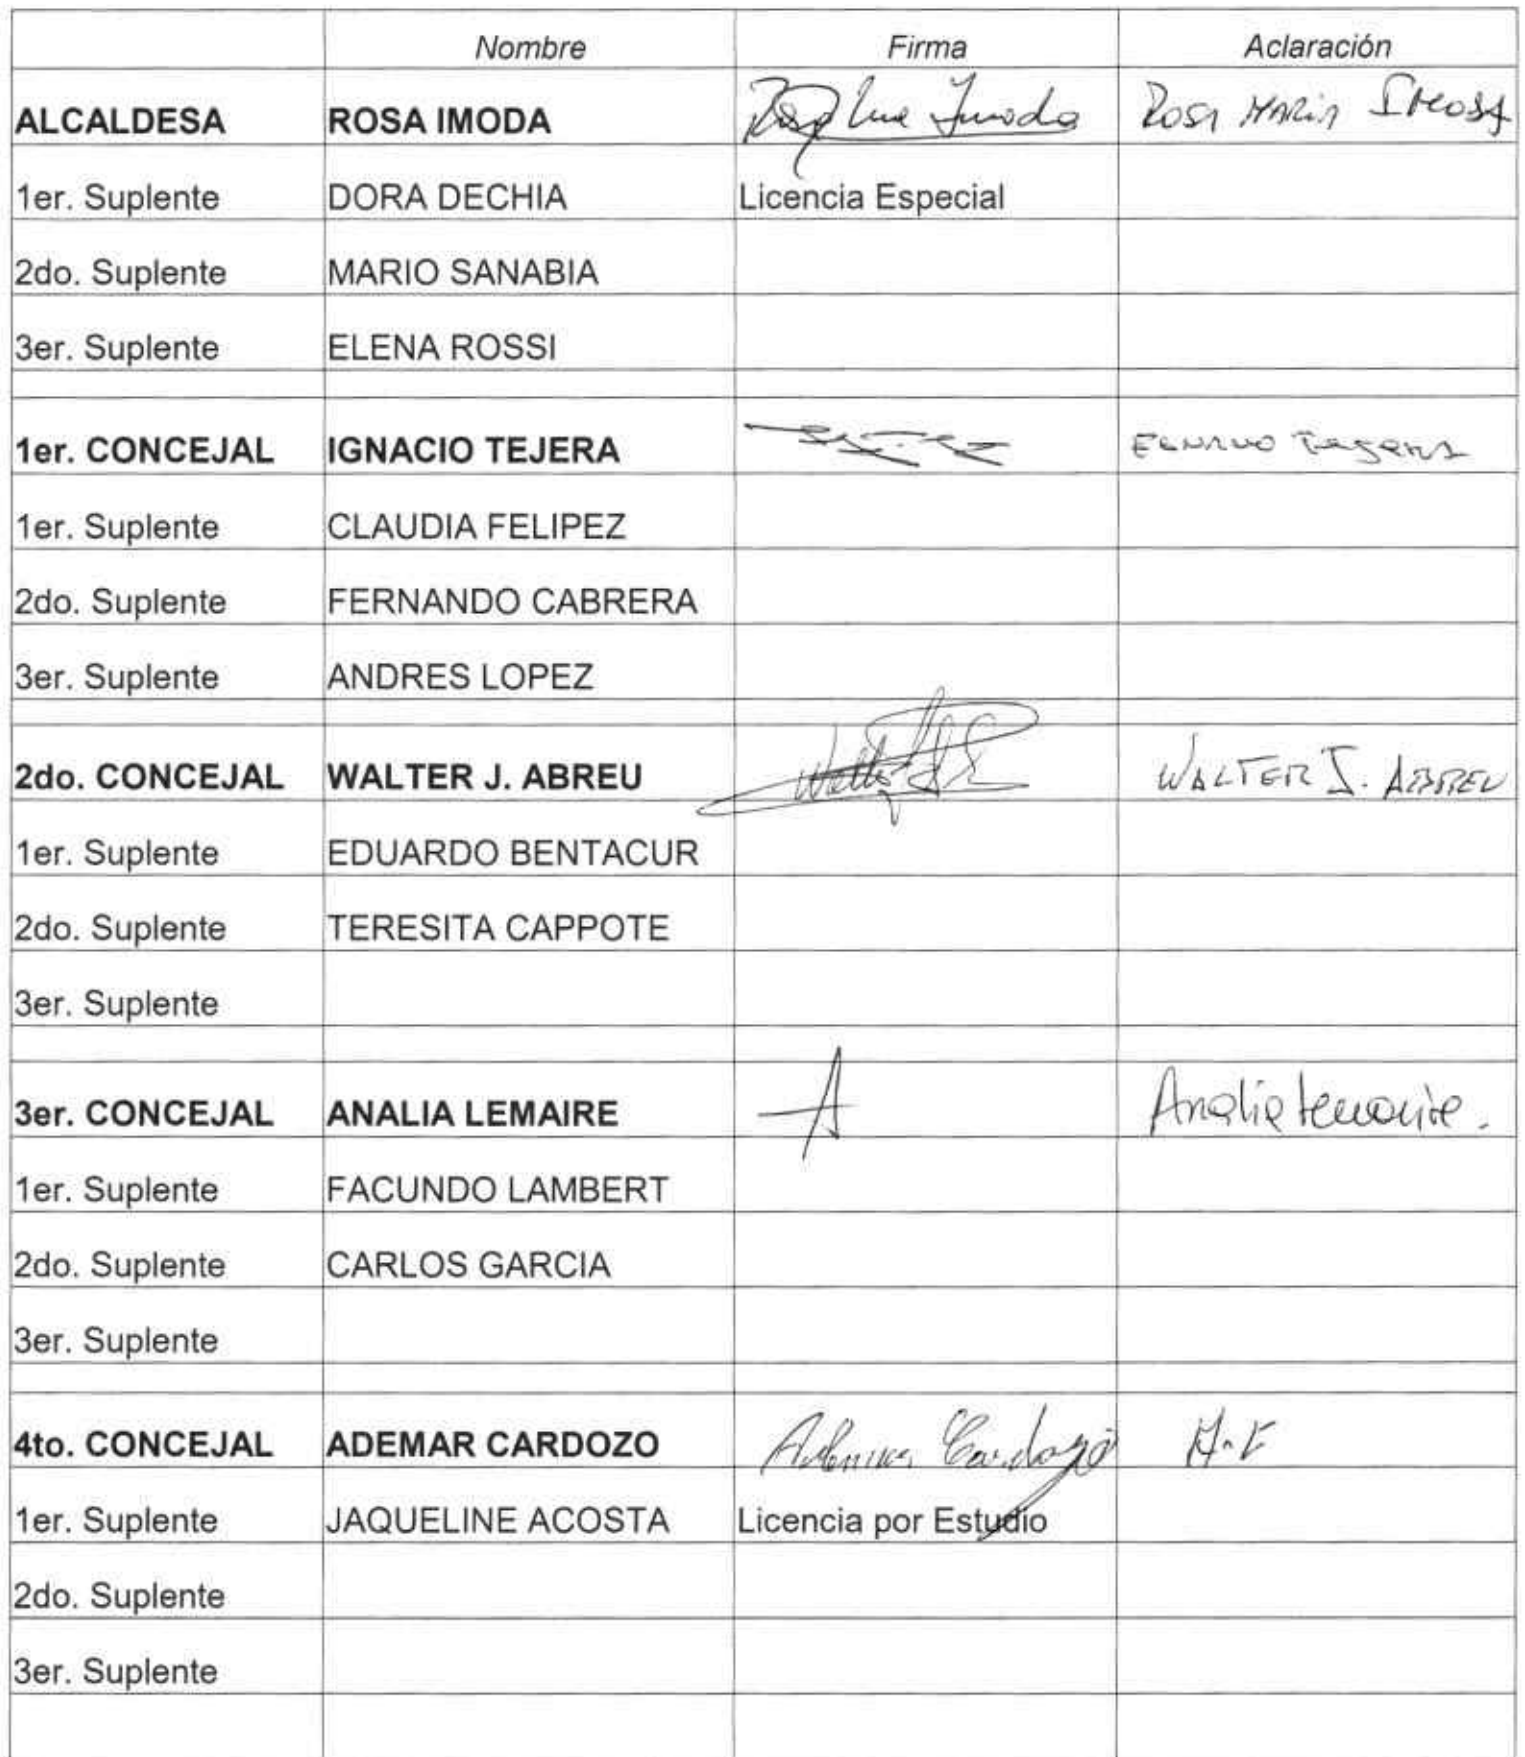 Nombre Firma Aclaración
ALCALDESA ROSA IMODA Rosa Imoda ROSA MARIA IMODA
1er. Suplente DORA DECHIA Licencia Especial
2do. Suplente MARIO SANABIA
3er. Suplente ELENA ROSSI
1er. CONCEJAL IGNACIO TEJERA TEJERA
1er. Suplente CLAUDIA FELIPEZ
2do. Suplente FERNANDO CABRERA
3er. Suplente ANDRES LOPEZ
2do. CONCEJAL WALTER J. ABREU WALTER J. ABREU
1er. Suplente EDUARDO BENTACUR
2do. Suplente TERESITA CAPPOTE
3er. Suplente
3er. CONCEJAL ANALIA LEMAIRE A Analia Lemaire.
1er. Suplente FACUNDO LAMBERT
2do. Suplente CARLOS GARCIA
3er. Suplente
4to. CONCEJAL ADEMAR CARDOZO Cardozo
1er. Suplente JAQUELINE ACOSTA Licencia por Estudio
2do. Suplente
3er. Suplente